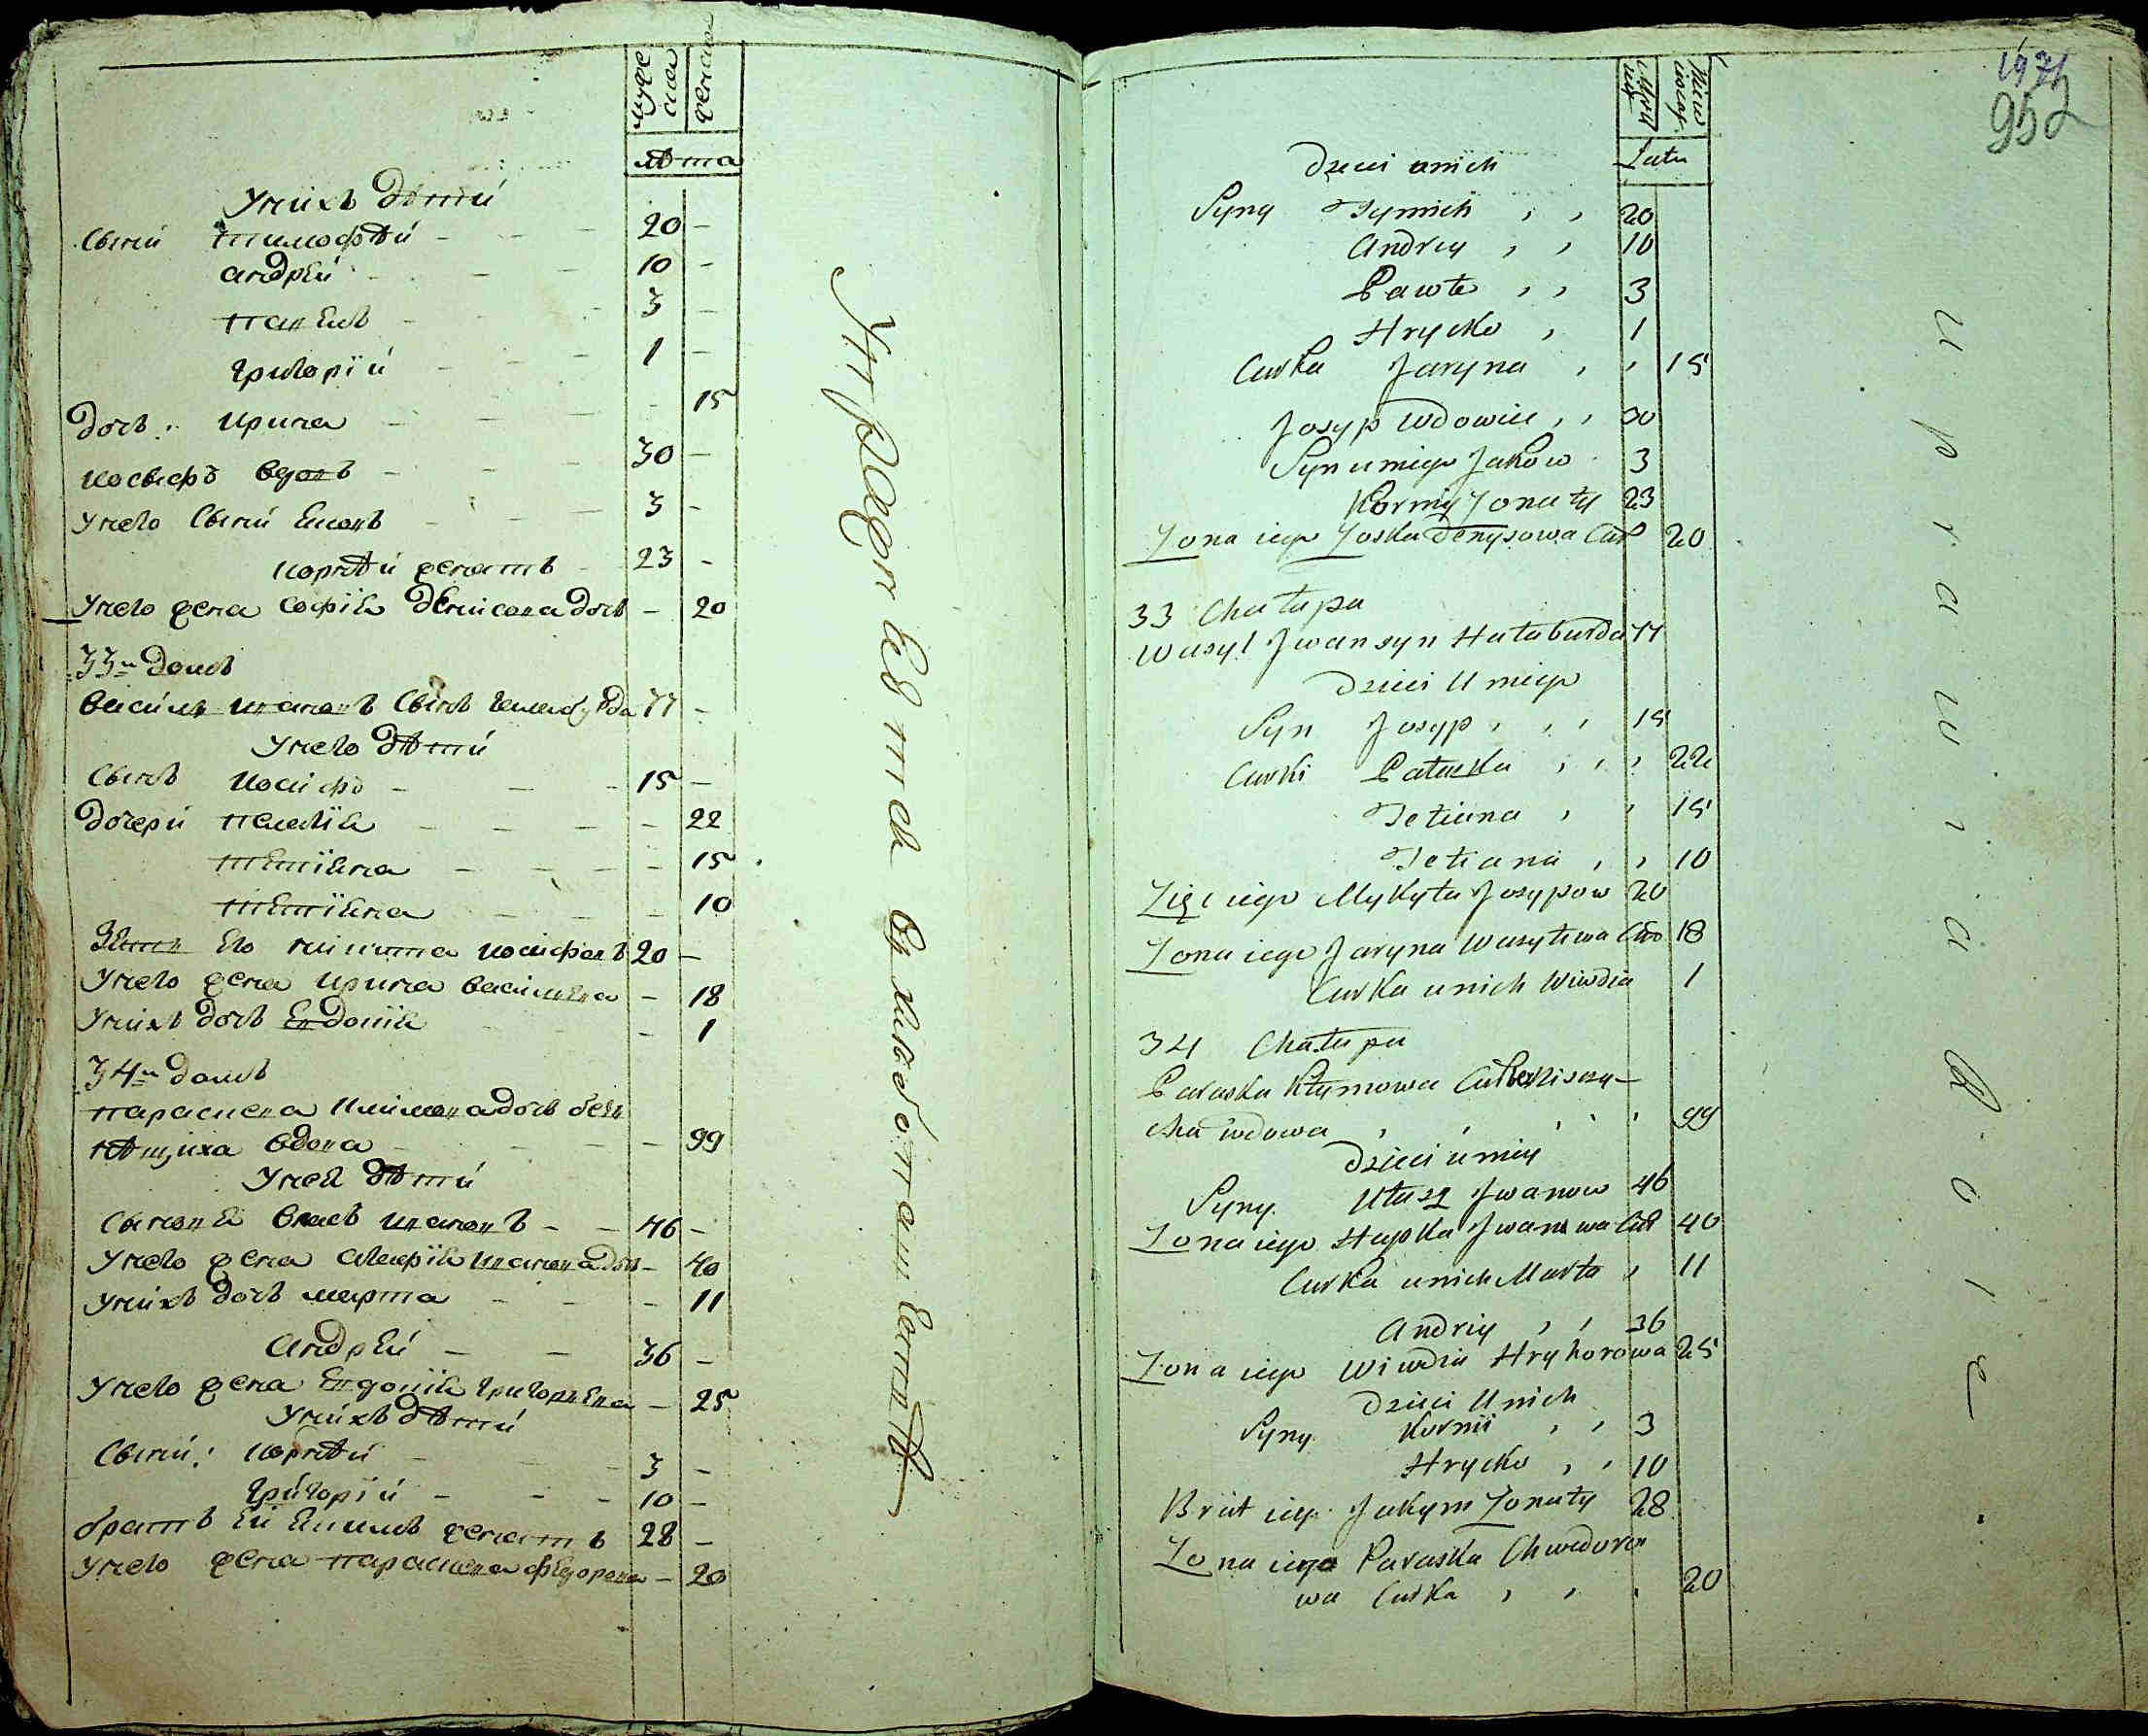 муже
ска
женска
лѣта
У нихъ дѣти
Сыни тимофѣй - - - 20 -
андрЕй - - - 10 -
павЕлъ - - - 3 -
григорій - - - 1 -
дочь: ирина - - - - 15
иосифъ вдовъ - - - 30 -
У него Сынъ Еиовъ - - - 3 -
корнѣй женатъ - 23 -
У него жена софія дЕнисова дочь - 20
33й домъ
василь ивановъ Сынъ галабурда 77 -
У него дѣти
Сынъ иосифъ - - - 15 -
дочери палажія - - - - 22
тЕтіяна - - - - 15
тЕтіяна - - - 10
Зять Его никита иосифовъ 20 -
У него жена ирина василЕва - 18
У нихъ дочь Евдокія - 1
34й домъ
параскева климова дочь
вдова - - - - 99
У неЯ дѣти
Сыновя власъ ивановъ - - 46 -
У него жена агафія иванова доч - 40
У нихъ дочь марта - - - 11
андрЕй - - 36 -
У него жена Евдокія григорьЕва - 25
У нихъ дѣти
Сыни: корнѣй - - 3 -
григорій - - - 10 -
братъ Ей Якимъ женатъ 28 -
У него жена параскева фЕдорова - 20
1971
952
Męsk
Lata
Dzieci u nich
Syny Tymich , , 20
Andrey , , 10
Pawło , , 3
Hrycko , 1
Curka Jaryna , , 15
Josyp Wdowiec , , 30
Syn u niego Jakow 3
Korniy Żonaty 23
Żona iego Zoska Denysowa Cur 20
33 Chałupa
Wasyl Jwan syn Hałaburda 77
Dzieci U niego
Syn Josyp , , , 15
Curki Pałaszka , , , 22
Tetiana , , 15
Tetiana , , 10
Zięć iego Mykyta Josypow 20
Żona iego Jaryna Wasylewa Cur 18
Curka u nich Wiwdia 1
34 Chałupa
Paraska Kłymowa Curka
cha wdowa , , , , 99
Dzieci u niey
Syny Ułasz Jwanow 46
Żona iego Hapka Jwanowa Cur 40
Curka u nich Marta , 11
Andriy , , 36
Żona iego Wiwdia Hryhorowa 25
Dzieci U nich
Syny Kornii , , 3
Hrycko , , 10
Brat iey Jakym Żonaty 28
Żona iego Paraska Chwedoro
wa Curka , , , 20
uprawia Pole